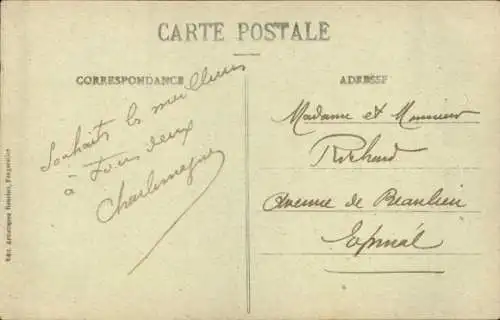 CARTE POSTALE
CORRESPONDANCE
Souhaits les meilleurs
à tous deux
Charlemagne
ADRESSE
Madame et Monsieur
Richard
Avenue de Beaulieu
Epinal
Edit. Artistiques